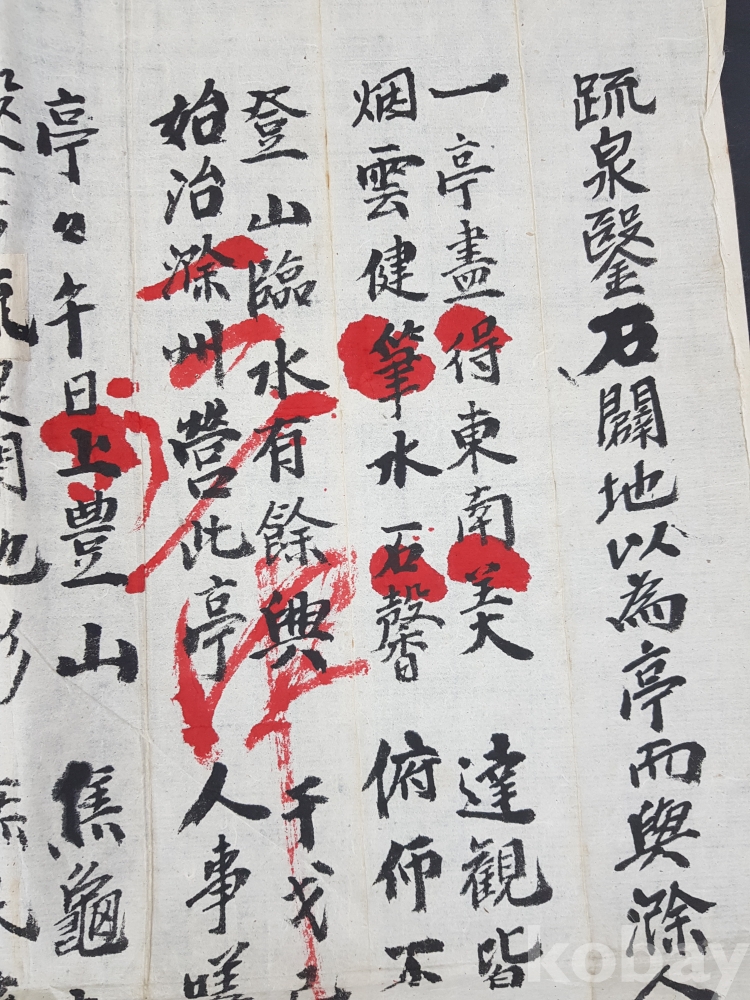 疏泉鑿石闢地以為亭而與滁人
一亭盡得東南美 達觀皆
烟雲健筆水石馨 俯仰不
登山臨水有餘興 干戈
始治滁州營此亭 人事嘆
亭々午日上豊山 焦龜
kobay